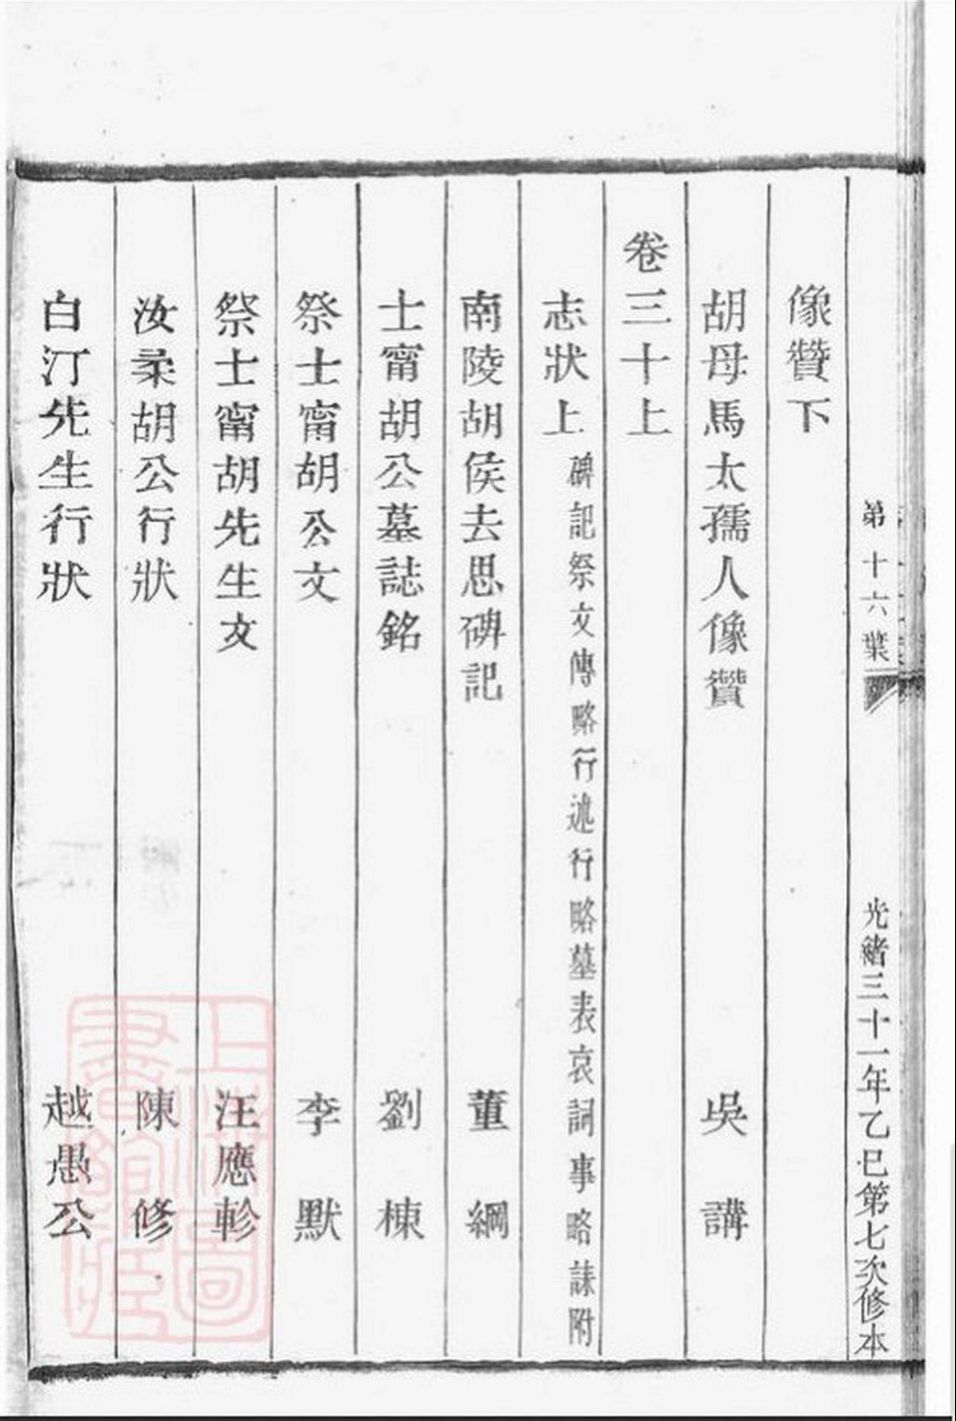 第十六葉
光緒三十一年乙巳第七次修本
像贊下
胡母馬太孺人像贊 吳講
卷三十上
志狀上 碑記祭文傳略行述行略墓表哀詞事略誄附
南陵胡侯去思碑記 董綱
士甯胡公墓誌銘 劉棟
祭士甯胡公文 李默
祭士甯胡先生文 汪應軫
汝柔胡公行狀 陳修
白汀先生行狀 越愚公
上海圖書館藏